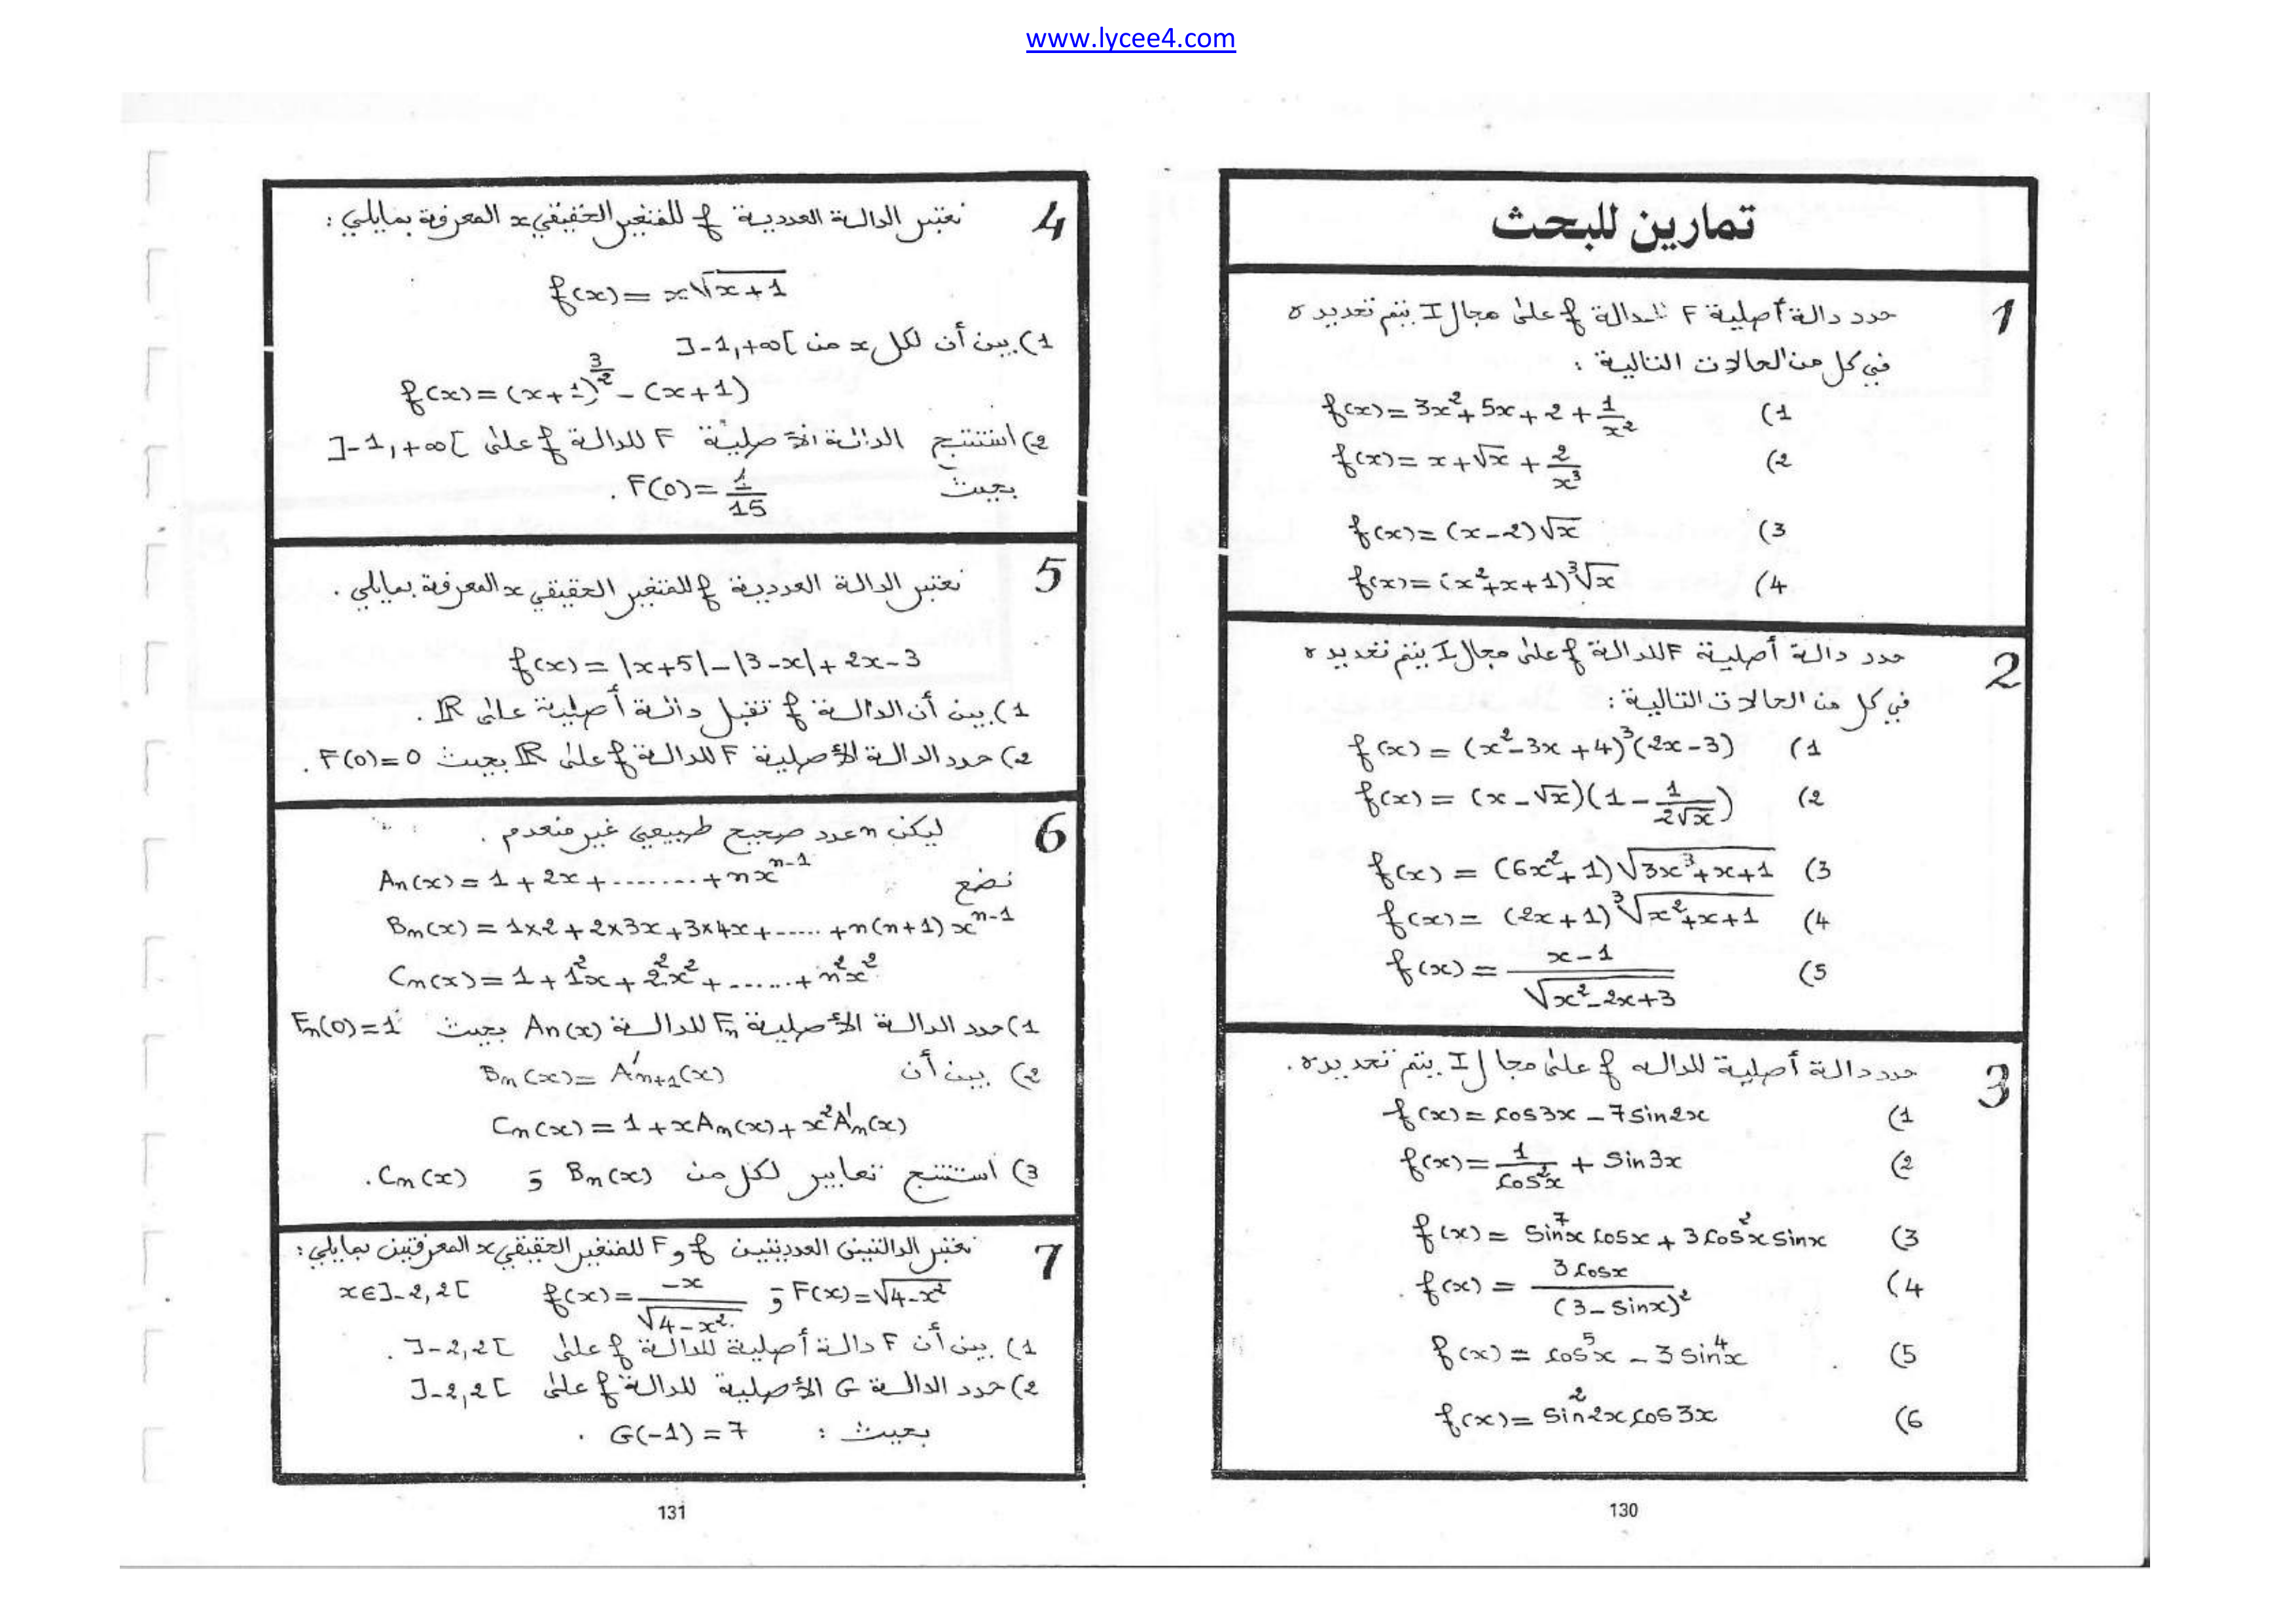 www.lycee4.com
تمارين للبحث
1
حدد دالة أصلية F للدالة f على مجال I يتم تحديده
في كل من الحالات التالية :
1) f(x) = 3x² + 5x + 2 + 1/x²
2) f(x) = x + √x + 2/x³
3) f(x) = (x-2)√x
4) f(x) = (x²+x+1)∛x
2
حدد دالة أصلية F للدالة f على مجال I يتم تحديده
في كل من الحالات التالية :
1) f(x) = (x²-3x+4)³(2x-3)
2) f(x) = (x-√x)(1 - 1/(2√x))
3) f(x) = (6x²+1)√(3x³+x+1)
4) f(x) = (2x+1)∛(x²+x+1)
5) f(x) = (x-1)/√(x²-2x+3)
3
حدد دالة أصلية للداله f على مجال I يتم تحديده.
1) f(x) = cos3x - 7sin2x
2) f(x) = 1/cos²x + sin3x
3) f(x) = sin⁷x cosx + 3cos²x sinx
4) f(x) = 3cosx/(3-sinx)²
5) f(x) = cos⁵x - 3sin⁴x
6) f(x) = sin²2x cos3x
130
4
نعتبر الدالة العددية f للمتغير الحقيقي x المعرفة بمايلي :
f(x) = x√(x+1)
1) بين أن لكل x من ]-1,+∞[
f(x) = (x+1)^(3/2) - (x+1)
2) استنتج الدالة الأصلية F للدالة f على ]-1,+∞[
بحيث F(0) = 1/15 .
5
نعتبر الدالة العددية f للمتغير الحقيقي x المعرفة بمايلي .
f(x) = |x+5| - |3-x| + 2x - 3
1) بين أن الدالة f تقبل دالة أصلية على ℝ .
2) حدد الدالة الأصلية F للدالة f على ℝ بحيث F(0)=0 .
6
ليكن n عدد صحيح طبيعي غير منعدم .
نضع Aₙ(x) = 1 + 2x + ........ + nxⁿ⁻¹
Bₙ(x) = 1×2 + 2×3x + 3×4x + ..... + n(n+1)xⁿ⁻¹
Cₙ(x) = 1 + 1²x + 2²x² + ...... + n²x²
1) حدد الدالة الأصلية Fₙ للدالة Aₙ(x) بحيث Fₙ(0)=1
2) بين أن Bₙ(x) = A'ₙ₊₁(x)
Cₙ(x) = 1 + xAₙ(x) + x²A'ₙ(x)
3) استنتج تعابير لكل من Bₙ(x) و Cₙ(x) .
7
نعتبر الدالتين العدديتين f و F للمتغير الحقيقي x المعرفتين بمايلي :
F(x) = √(4-x²) و f(x) = -x/√(4-x²) x∈]-2,2[
1) بين أن F دالة أصلية للدالة f على ]-2,2[ .
2) حدد الدالة G الأصلية للدالة f على ]-2,2[
بحيث : G(-1) = 7 .
131